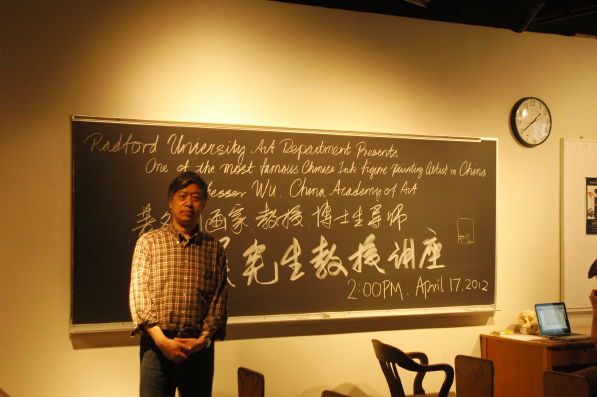 Radford University Art Department Presents
One of the most famous Chinese Ink figure painting Artist in China
Wu. China Academy of Art
著名画家 教授.博士生导师
宪生教授讲座
2:00PM. April 17.2012